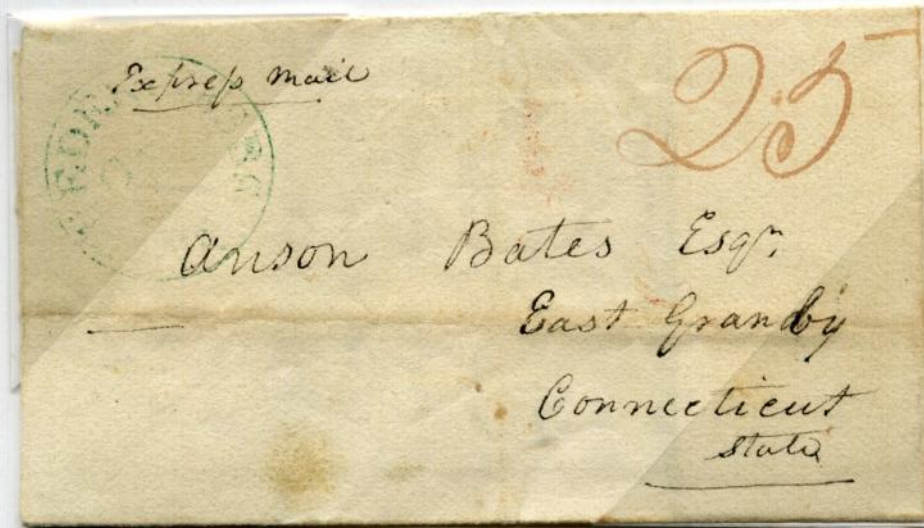 Express Mail
25
Anson Bates Esqr.
East Granby
Connecticut
State